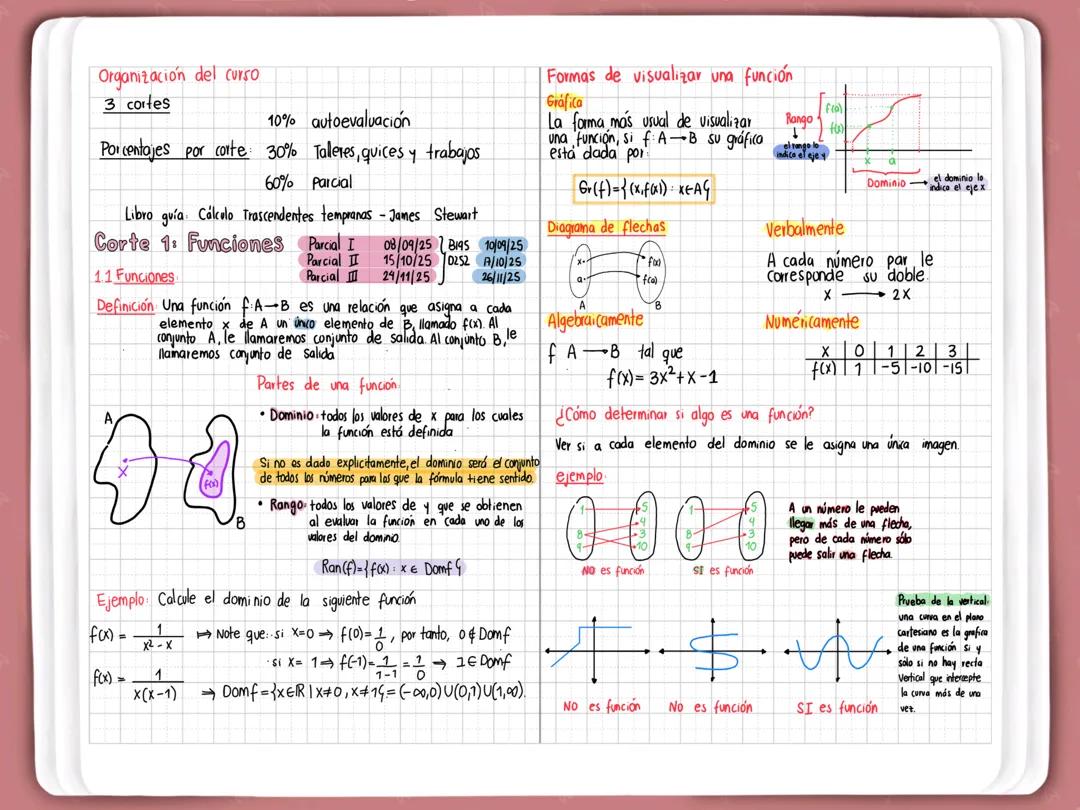 Organización del curso
3 cortes
10% autoevaluación
Porcentajes por corte: 30% Talleres, quices y trabajos
60% parcial
Libro guía: Cálculo Trascendentes tempranas - James Stewart
Corte 1: Funciones
Parcial I 08/09/25 B195 10/09/25
Parcial II 15/10/25 D252 17/10/25
Parcial III 24/11/25 26/11/25
1.1 Funciones:
Definición: Una función f: A→B es una relación que asigna a cada
elemento x de A un único elemento de B, llamado f(x). Al
conjunto A, le llamaremos conjunto de salida. Al conjunto B, le
llamaremos conjunto de salida
Partes de una función:
A
x
f(x)
B
• Dominio: todos los valores de x para los cuales
la función está definida
Si no es dado explicitamente, el dominio será el conjunto
de todos los números para los que la fórmula tiene sentido.
• Rango: todos los valores de y que se obtienen
al evaluar la función en cada uno de los
valores del domino.
Ran(f)={f(x) : x ∈ Domf}
Ejemplo: Calcule el dominio de la siguiente función
f(x) = 1/(x² - x) ⇒ Note que: · si x=0 ⇒ f(0)= 1/0, por tanto, 0 ∉ Domf
· si x= 1 ⇒ f(-1)= 1/(1-1) = 1/0 → 1 ∈ Domf
f(x) = 1/(x(x-1)) ⇒ Domf={x∈ℝ | x≠0, x≠1}=(-∞,0)∪(0,1)∪(1,∞).
Formas de visualizar una función
Gráfica
La forma más usual de visualizar
una función, si f: A→B su gráfica
está dada por:
Gr(f)={(x,f(x)) : x∈A}
Rango
el rango lo
indica el eje y
f(a)
f(x)
x a
Dominio → el dominio lo
indica el eje x
Diagrama de flechas
x f(x)
a f(a)
A B
Verbalmente
A cada número par le
corresponde su doble.
x → 2x
Algebraicamente
f A→B tal que
f(x)= 3x²+x-1
Numéricamente
x 0 1 2 3
f(x) 1 -5 -10 -15
¿Cómo determinar si algo es una función?
Ver si a cada elemento del dominio se le asigna una única imagen.
ejemplo:
1 5
4
8 3
9 10
NO es función
1 5
4
8 3
9 10
SI es función
A un número le pueden
llegar más de una flecha,
pero de cada número sólo
puede salir una flecha.
No es función
No es función
SI es función
Prueba de la vertical:
una curva en el plano
cartesiano es la grafica
de una función si y
sólo si no hay recta
vertical que intercepte
la curva más de una
vez.